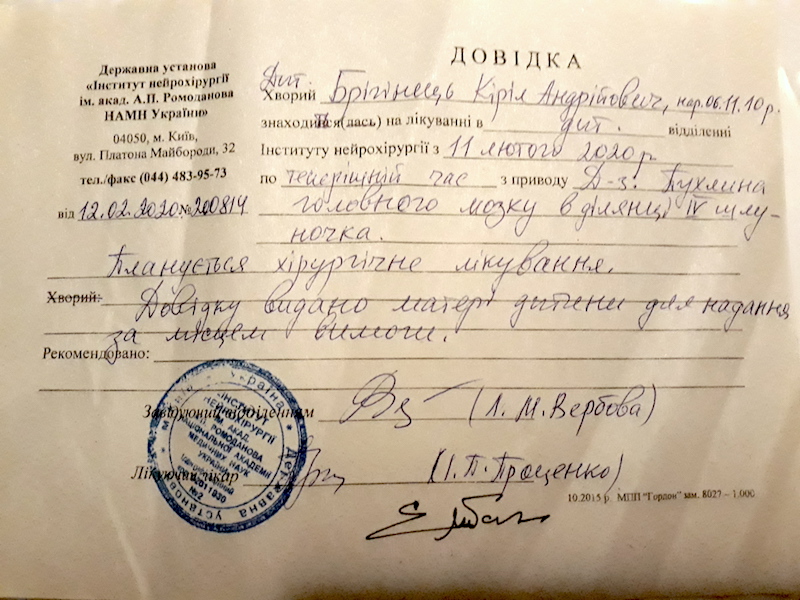 ДОВІДКА
Державна установа
«Інститут нейрохірургії
ім. акад. А.П. Ромоданова
НАМН України»
04050, м. Київ,
вул. Платона Майбороди, 32
тел./факс (044) 483-95-73
від 12.02.2020 № 200814
Дит.
Хворий Брігінець Кіріл Андрійович, нар. 06.11.10 р.
знаходиться (лась) на лікуванні в дит. відділенні
Інституту нейрохірургії з 11 лютого 2020 р.
по теперішній час з приводу Д-з. Пухлина
головного мозку в ділянці IV шлу-
ночка.
Планується хірургічне лікування.
Хворий: Довідку видано матері дитини для надання
за місцем вимоги.
Рекомендовано:
Завідуючий відділенням (Л. М. Вербова)
Лікуючий лікар (І. П. Проценко)
10.2015 р. МПП "Гордон" зам. 8027 – 1.000
Україна
Державна установа
ІНСТИТУТ
НЕЙРОХІРУРГІЇ
АКАД.
РОМОДАНОВА
НАЦІОНАЛЬНОЇ АКАДЕМІЇ
МЕДИЧНИХ НАУК
УКРАЇНИ
№2